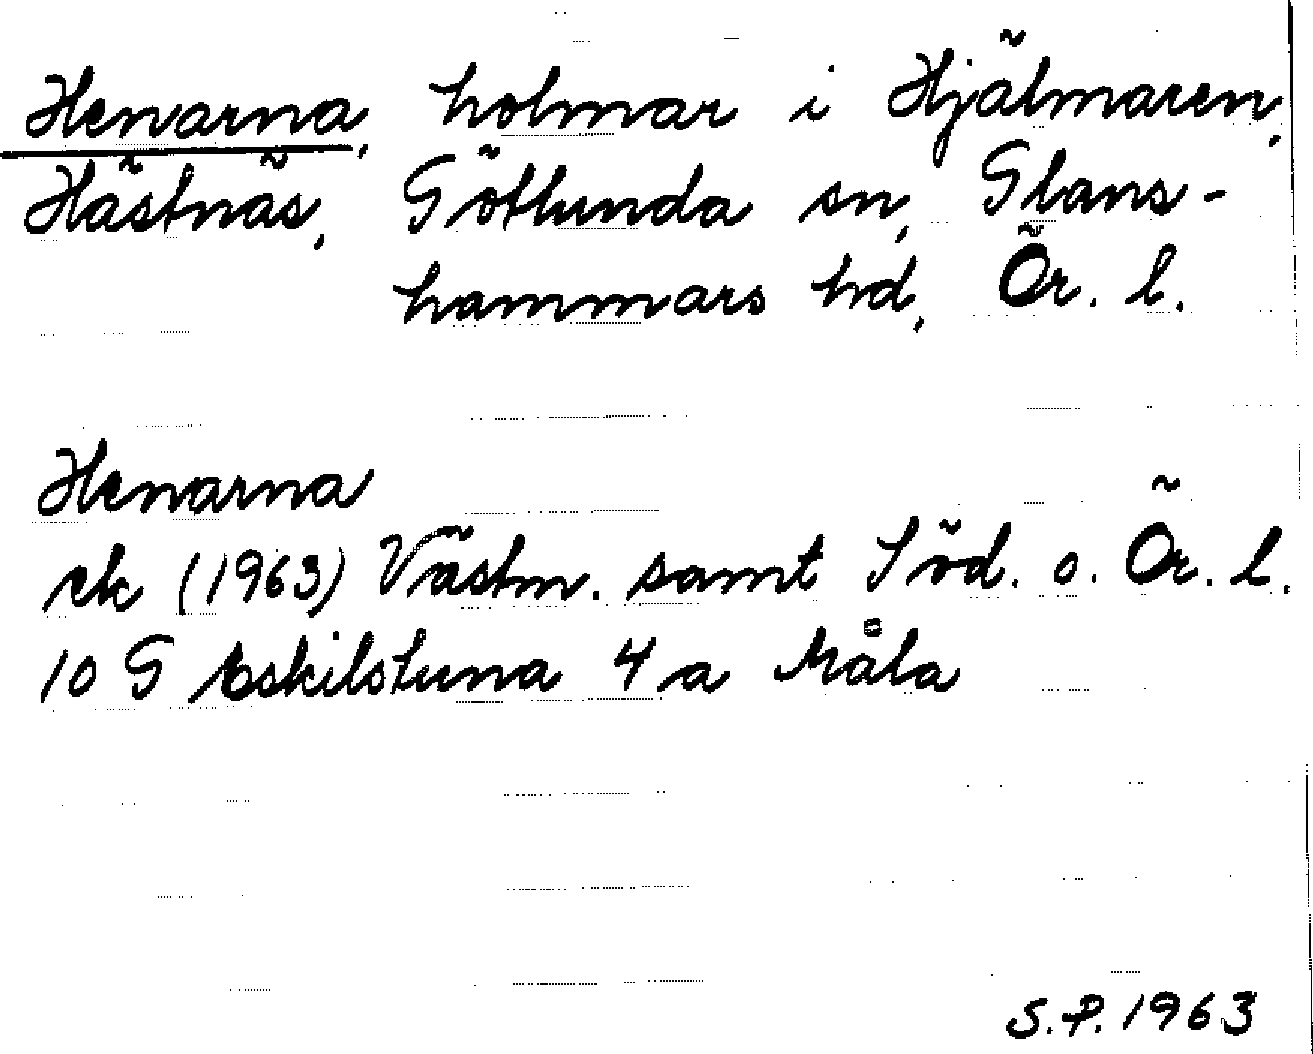 Henarna, holmar i Hjälmaren,
Hästnäs, Götlunda sn, Glans-
hammars hd, Ör. l.
Henarna
ek (1963) Västm. samt Söd. o. Ör. l.
10 G Eskilstuna 4 a Måla
S.P. 1963